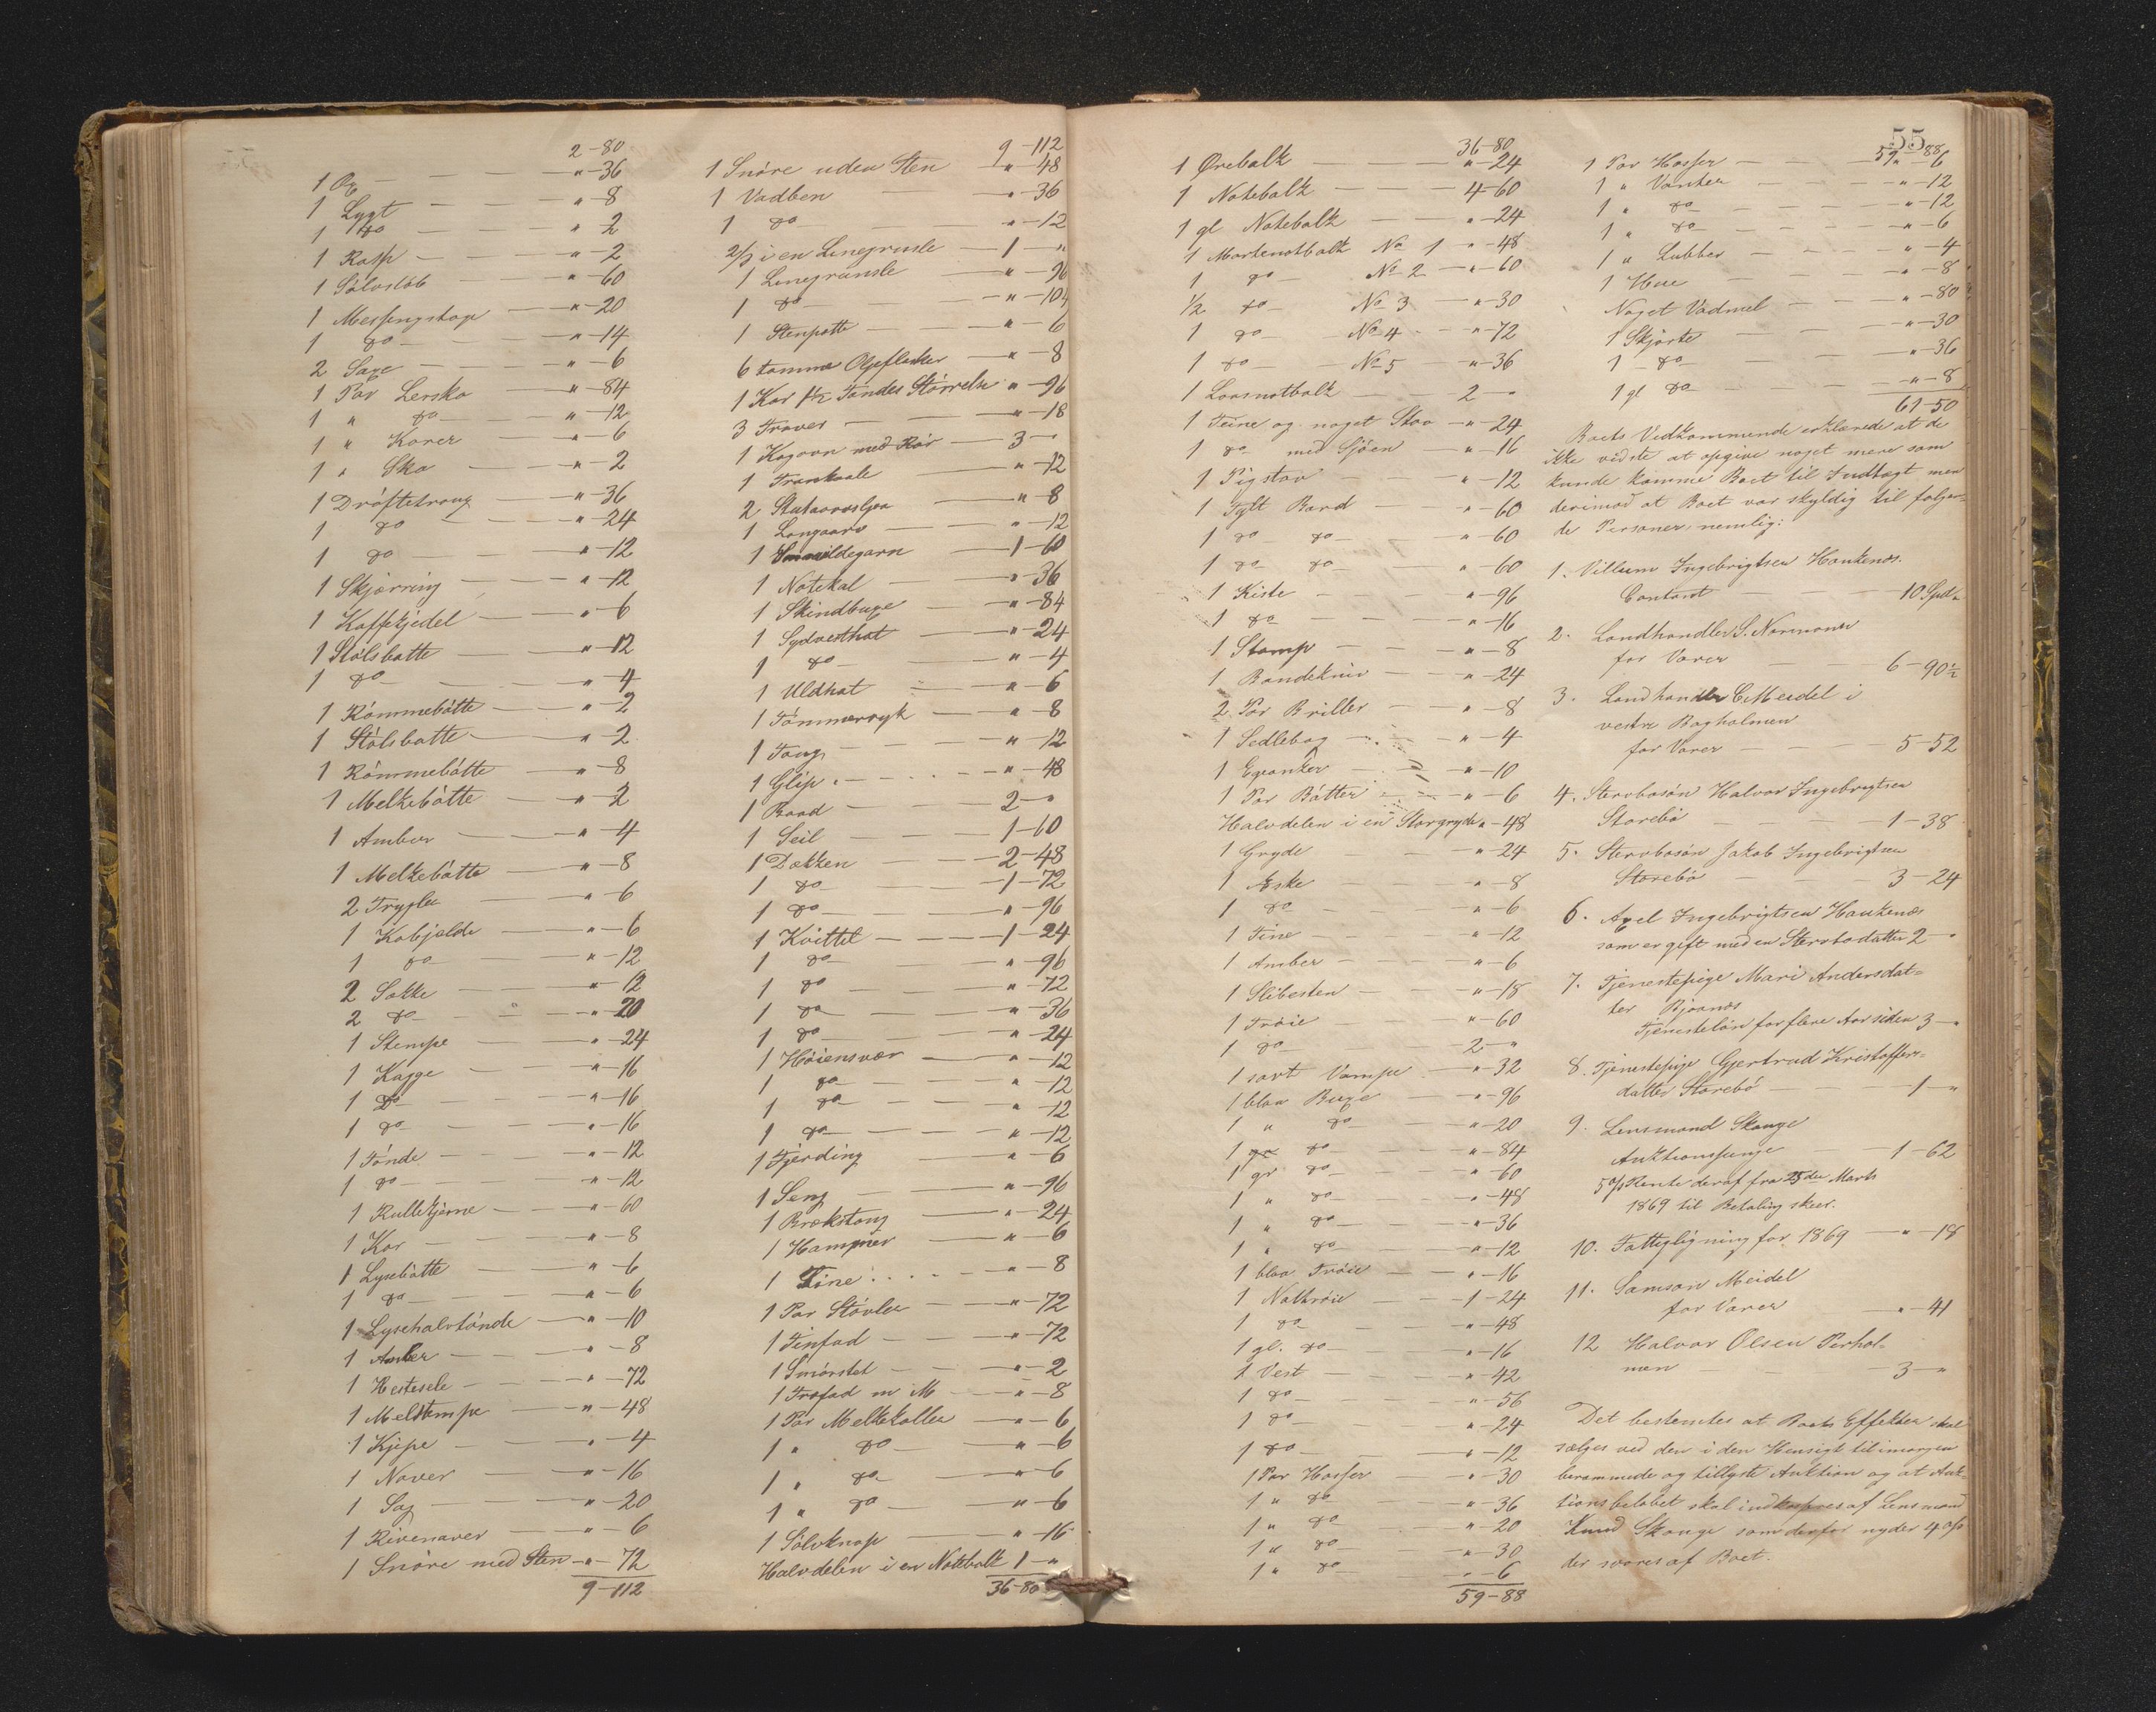 2-80
1 Øx — „-36
1 Lygt — „-8
1 do — „-2
1 Rasp — „-2
1 Sølvsløb — „-60
1 Messingskap — „-20
1 do — „-14
2 Saxe — „-6
1 Par Lersko — „-84
1 „ do — „-12
1 „ Korer — „-6
1 „ Sko — „-2
1 Drøftetroug — „-36
1 do — „-24
1 do — „-12
1 Skjørring — „-12
1 Kaffekjedel — „-6
1 Stølsbøtte — „-12
1 do — „-4
1 Rømmebøtte — „-2
1 Stølsbøtte — „-2
1 Rømmebøtte — „-8
1 Melkebøtte — „-2
1 Ambar — „-4
1 Melkebøtte — „-8
2 Trygler — „-6
1 Kobjelde — „-6
1 do — „-12
2 Sække — „-12
2 do — „-20
1 Stempe — „-24
1 Kagge — „-16
1 Do — „-16
1 do — „-16
1 Tønde — „-12
1 do — „-12
1 Rullekjerne — „-60
1 Kar — „-8
1 Lysebøtte — „-6
1 do — „-6
1 Lysehalvtønde — „-10
1 Anker — „-8
1 Hestesele — „-72
1 Melstempe — „-48
1 Kjipe — „-4
1 Naver — „-16
1 Sag — „-20
1 Rivenaver — „-6
1 Snøre med Sten „-72
9-112
9-112
1 Snøre uden Sten „-48
1 Vadben — „-36
1 do — „-12
2/3 i en Linegrunle — 1-„
1 Linegrunsle — „-96
1 do — „-104
1 Stenpotte — „-6
6 tomme Oljeflasker — „-8
1 Kar 1 1/2 Tøndes Størrelse „-96
3 Traver — „-18
1 Kogovn med Rør — 3-„
1 Trankvale — „-12
2 — „-8
1 Langaarv — „-12
1 Smaaildegarn — 1-60
1 Notekal — „-36
1 Skindbuxe — „-84
1 Sydvesthat — „-24
1 do — „-4
1 Uldhat — „-6
1 Tømmerryk — „-8
1 Toug — „-12
1 Glip — „-48
1 Baad — 2-„
1 Seil — 1-60
1 Dækken — 2-48
1 do — 1-72
1 do — „-96
1 Kvittel — 1-24
1 do — „-96
1 do — „-72
1 do — „-36
1 do — „-24
1 Høiensvær — „-12
1 do — „-12
1 do — „-12
1 do — „-12
1 Fjerding — „-6
1 Seng — „-96
1 Brækstang — „-24
1 Hammer — „-6
1 Tine — „-8
1 Par Støvler — „-72
1 Tinfad — „-72
1 Smørstet — „-2
1 Træfad m M — „-8
1 Par Melkekoller — „-6
1 „ do — „-6
1 „ do — „-6
1 „ do — „-6
1 Sølvknap — „-16
Halvdelen i en Notebalk 1-„
36-80
36-80
1 Ørebalk — „-24
1 Notebalk — 4-60
1 gl Notebalk — „-24
1 Mortenotbalk No 1 „-48
1 do No 2 „-60
1/2 do No 3 „-30
1 do No 4 „-72
1 do No 5 „-36
1 Laxnotbalk — 2-„
1 Teine og noget Stav „-24
1 do med Sjøen „-16
1 Pigstav — „-12
1 Tylt Bord — „-60
1 do do — „-60
1 do do — „-60
1 Kiste — „-96
1 do — „-16
1 Stamp — „-8
1 Bandekniv — „-24
2 Par Briller — „-8
1 Sedlebog — „-4
1 Egeanker — „-10
1 Par Bøtter — „-6
Halvdelen i en Storgryde „-48
1 Gryde — „-24
1 Æske — „-8
1 do — „-6
1 Tine — „-12
1 Amber — „-6
1 Slibesten — „-18
1 Trøie — „-60
1 do — 2-„
1 sort Vampe — „-32
1 blaa Buxe — „-96
1 „ do — „-20
1 gr do — „-84
1 gr do — „-60
1 „ do — „-48
1 „ do — „-36
1 „ do — „-12
1 blaa Trøie — „-16
1 Nattrøie — 1-24
1 do — „-48
1 gl. do — „-16
1 Vest — „-42
1 do — „-56
1 do — „-24
1 do — „-12
1 Par Hosser — „-30
1 „ do — „-36
1 „ do — „-20
1 „ do — „-30
1 „ do — „-6
59-88
55
59-88
1 Par Hosser — „-6
1 „ Vanter — „-12
1 „ do — „-12
1 „ do — „-6
1 „ Lubber — „-4
1 Hue — „-8
Noget Vadmel — „-80
1 Skjorte — „-30
1 do — „-36
1 gl do — „-8
61-50
Boets Vedkommende erklærede at de
ikke vidste at opgive noget mere som
kunde komme Boet til Indtægt men
derimod at Boet var skyldig til følgen-
de Personer, nemlig:
1. Villum Ingebrigtsen Haukenæs.
Contant — 10 Spd „
2. Landhandler S. Normann
for Varer — 6-90 1/2
3. Landhandler C. Meidel i
vestre Bagholmen
for Varer — 5-52
4. Stervbosøn Halvor Ingebrigtsen
Storebø — 1-38
5. Stervbosøn Jakob Ingebrigtsen
Storebø — 3-24
6. Axel Ingebrigtsen Haukenæs
som er gift med en Stervbodatter 2-„
7. Tjenestepige Mari Andersdat-
ter Bjørnæs
Tjenesteløn for flere Aar siden 3-„
8. Tjenestepige Gjertrud Kristoffers-
datter Storebø — 1-„
9. Lensmand Skauge
Auktionspenge — 1-62
5 o/o Rente deraf fra 25de Marts
1869 til Betaling skeer.
10. Fattigligning for 1869 — „-18
11. Samson Meidel
for Varer — „-41
12 Halvor Olsen Perhol-
men — 3-„
Det bestemtes at Boets Effekter skal
sælges ved den i den Hensigt til imorgen
berammede og tillyste Auktion og at Auk-
tionsbeløbet skal indkasseres af Lensmand
Knud Skauge som derfor nyder 4 o/o
der svares af Boet.